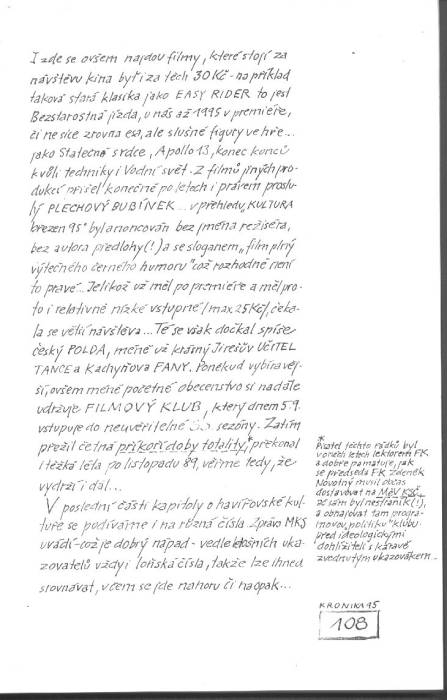 I zde se ovšem najdou filmy, které stojí za
návštěvu kina byť i za těch 30 Kč - například
taková stará klasika jako EASY RIDER to jest
Bezstarostná jízda, u nás až 1995 v premieře,
či ne sice zrovna esa, ale slušné figury ve hře...
jako Statečné srdce, Apollo 13, konec konců
kvůli technice i Vodní svět. Z filmů jiných pro-
dukcí přišel konečně po letech i právem proslu-
lý PLECHOVÝ BUBÍNEK... v přehledu „KULTURA
březen 95" byl anoncován bez jména režiséra,
bez autora předlohy (!) a se sloganem „film plný
výtečného černého humoru" což rozhodně není
to pravé... Jelikož už měl po premieře a měl pro-
to i relativně nízké vstupné /max. 25 Kč/, čeka-
la se větší návštěva... Té se však dočkal spíše
český POLDA, méně už krásný Jirešův UČITEL
TANCE a Kachyňova FANY. Poněkud vybíravěj-
ší, ovšem méně početné obecenstvo si nadále
udržuje FILMOVÝ KLUB, který dnem 5.9.
vstupuje do neuvěřitelné 33. sezóny. Zatím
přežil četná příkoří doby totality,* překonal
i těžká léta po listopadu 89, věřme tedy, že
vydrží i dál...
V poslední části kapitoly o havířovské kul-
tuře se podíváme i na různá čísla. Zpráva MKS
uvádí - což je dobrý nápad - vedle letošních uka-
zovatelů vždy i loňská čísla, takže lze ihned
srovnávat, v čem se jde nahoru či naopak...
*
Pisatel těchto řádků byl
v oněch letech lektorem FK
a dobře pamatuje, jak
se předseda FK Zdeněk
Novotný musil občas
dostavovat na MěV KSČ,
ač sám byl nestraník (!),
a obhajovat tam progra-
movou „politiku" klubu
před ideologickými
dohlížiteli s káravě
zvednutým ukazovákem...
KRONIKA 95
108